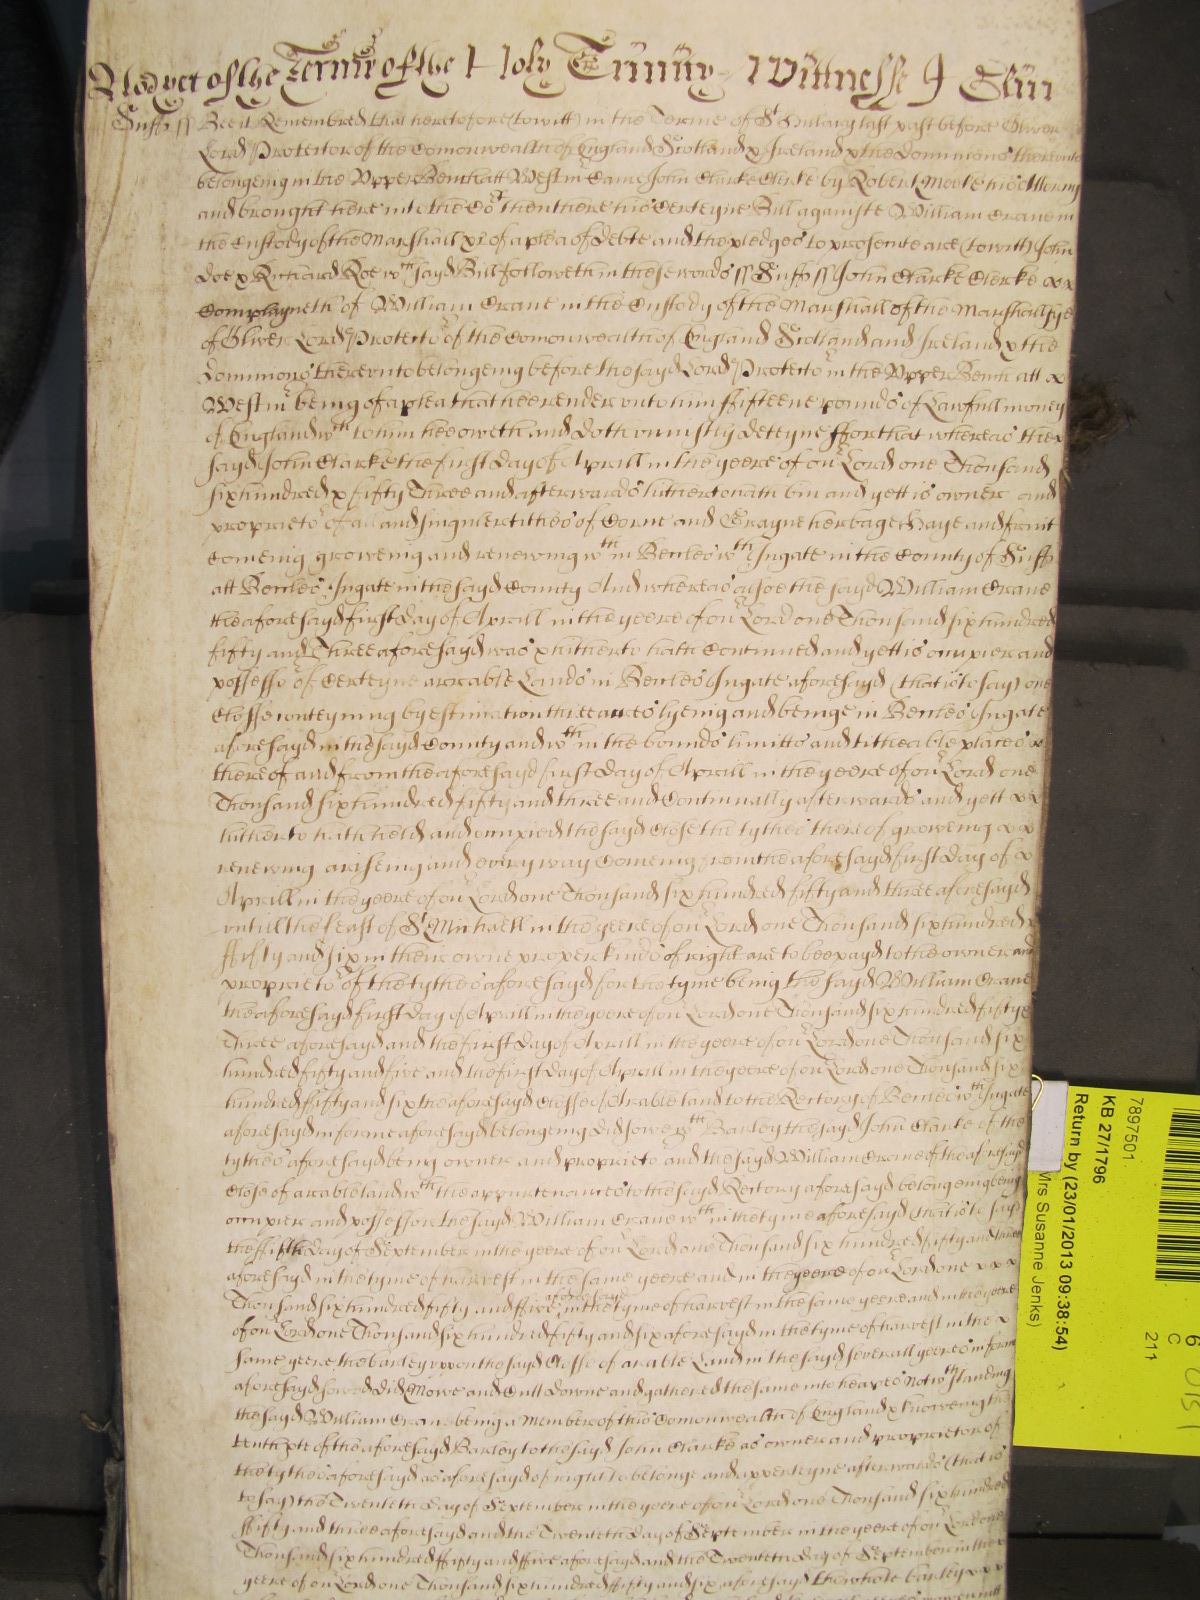 As yet of the Terme of the Holy Trinity Wittnesse J Glin
Suff ss Bee it Remembred that heretofore (to witt) in the Terme of St Hillary last past before Oliver
Lord Protector of the Comonwealth of England Scotland & Ireland & the Dominions thereunto
belongeing in the Upper Bench att Westm Came John Clarke Clerke by Robert his Attorney
and brought here into the Cot then there his Certeyne Bill againste William Crane in
the Custody of the Marshall &c of a plea of Debte and the pledges to prosecute are (to witt) John
Doe & Richard Roe wch sayd Bill followeth in these words ss Suff ss John Clarke Clercke
Complayneth of William Crane in the Custody of the Marshall of the Marshallsye
of Oliver Lord Protector of the Comonwealth of England Scotland and Ireland & the
Dominions thereunto belongeing before the sayd Lord Protector in the Upper Bench att
Westm being of a plea that hee render unto him fifteene pounds of Lawfull money
of England wch to him hee oweth and doth uniustly deteyne ffor that whereas the
sayd John Clarke the first day of Aprill in the yeere of our Lord one Thousand
six hundred & fifty Three and afterwards hitherto hath bin and yett is owner and
proprietor of all and singuler tithes of Corne and Grayne herbage Haye and fruit
comeing groweing and renewing wth in Beccles wth Ingate in the County of Suff
att Beccles Ingate in the sayd County And whereas alsoe the sayd William Crane
the aforesayd first day of Aprill in the yeere of our Lord one Thousand six hundred
fifty and Three aforesayd was & hitherto hath Continued and yett is occupier and
possessor of Certeyne arrable Lands in Beccles Ingate aforesayd (that is to say) one
Closse conteyning by estimation three acres lyeing and beinge in Beccles Ingate
aforesayd in the sayd County and wth in the bounds limitts and titheable places
thereof and from the aforesayd first day of Aprill in the yeere of our Lord one
Thousand six hundred fifty and three and Continually afterwards and yett
hitherto hath held and occupied the sayd Close the tythes thereof groweing
renewing ariseing and every way Comeing from the aforesayd first day of
Aprill in the yeere of our Lord one Thousand six hundred fifty and three aforesayd
untill the feast of St Michaell in the yeere of our Lord one Thousand six hundred
ffifty and six in their owne proper kinds of right are to bee payd to the owner and
proprietor of the tythes aforesayd for the tyme being the sayd William Crane
the aforesayd first day of Aprill in the yeere of our Lord one Thousand six hundred fifty
Three aforesayd and the first day of Aprill in the yeere of our Lord one Thousand six
hundred fifty and five and the first day of Aprill in the yeere of our Lord one Thousand six
hundred fifty and six the aforesayd Closse of Arable land to the Rectory of Beccles wth Ingate
aforesayd in forme aforesayd belongeing did sowe wth Barley the sayd John Clarke of the
tythes aforesayd being owner and proprietor and the sayd William Crane of the aforesayd
Close of arable land wth the appurtenances to the sayd Rectory aforesayd belongeing being
occupier and possessor the sayd William Crane wth in the tyme aforesayd (that is to say)
the ffifth day of September in the yeere of our Lord one Thousand six hundred fifty and three
aforesayd in the tyme of harvest in the same yeere and in the yeere of our Lord one
Thousand six hundred fifty and ffive aforesayd in the tyme of harvest in the same yeere and in the yeere
of our Lord one Thousand six hundred fifty and six aforesayd in the tyme of harvest in the
same yeere the barley uppon the sayd Closse of arable Land in the sayd severall yeeres in forme
aforesayd sowed did Mowe and Cutt downe and gathered the same into heapes Notwthstanding
the sayd William Crane being a Member of this Comonwealth of England & knoweing the
tenth pte of the aforesayd Barley to the sayd John Clarke as owner and proprietor of
the tythes aforesayd as aforesayd of right to belonge and apperteyne afterwards (that is
to say) the Twenteth day of September in the yeere of our Lord one Thousand six hundred
ffifty and three aforesayd and the Twenteth day of September in the yeere of our Lord one
Thousand six hundred ffifty and ffive aforesayd and the Twenteth day of September in the
yeere of our Lord one Thousand six hundred ffifty and six aforesayd the whole barley
7897501
KB 27/1796
Return by (23/01/2013 09:38:54)
Mrs Susanne Jenks)
C
211